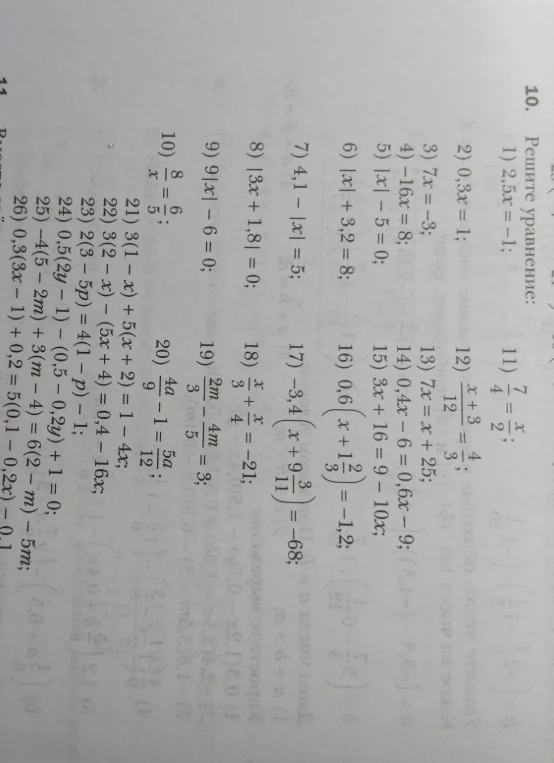 10. Решите уравнение:
1) 2,5x = –1; 11) 7/4 = x/2;
2) 0,3x = 1; 12) (x + 3)/12 = 4/3;
3) 7x = –3; 13) 7x = x + 25;
4) –16x = 8; 14) 0,4x – 6 = 0,6x – 9;
5) |x| – 5 = 0; 15) 3x + 16 = 9 – 10x;
6) |x| + 3,2 = 8; 16) 0,6(x + 1 2/3) = –1,2;
7) 4,1 – |x| = 5; 17) –3,4(x + 9 3/11) = –68;
8) |3x + 1,8| = 0; 18) x/3 + x/4 = –21;
9) 9|x| – 6 = 0; 19) 2m/3 – 4m/5 = 3;
10) 8/x = 6/5; 20) 4a/9 – 1 = 5a/12;
21) 3(1 – x) + 5(x + 2) = 1 – 4x;
22) 3(2 – x) – (5x + 4) = 0,4 – 16x;
23) 2(3 – 5p) = 4(1 – p) – 1;
24) 0,5(2y – 1) – (0,5 – 0,2y) + 1 = 0;
25) –4(5 – 2m) + 3(m – 4) = 6(2 – m) – 5m;
26) 0,3(3x – 1) + 0,2 = 5(0,1 – 0,2x) – 0,1
11.